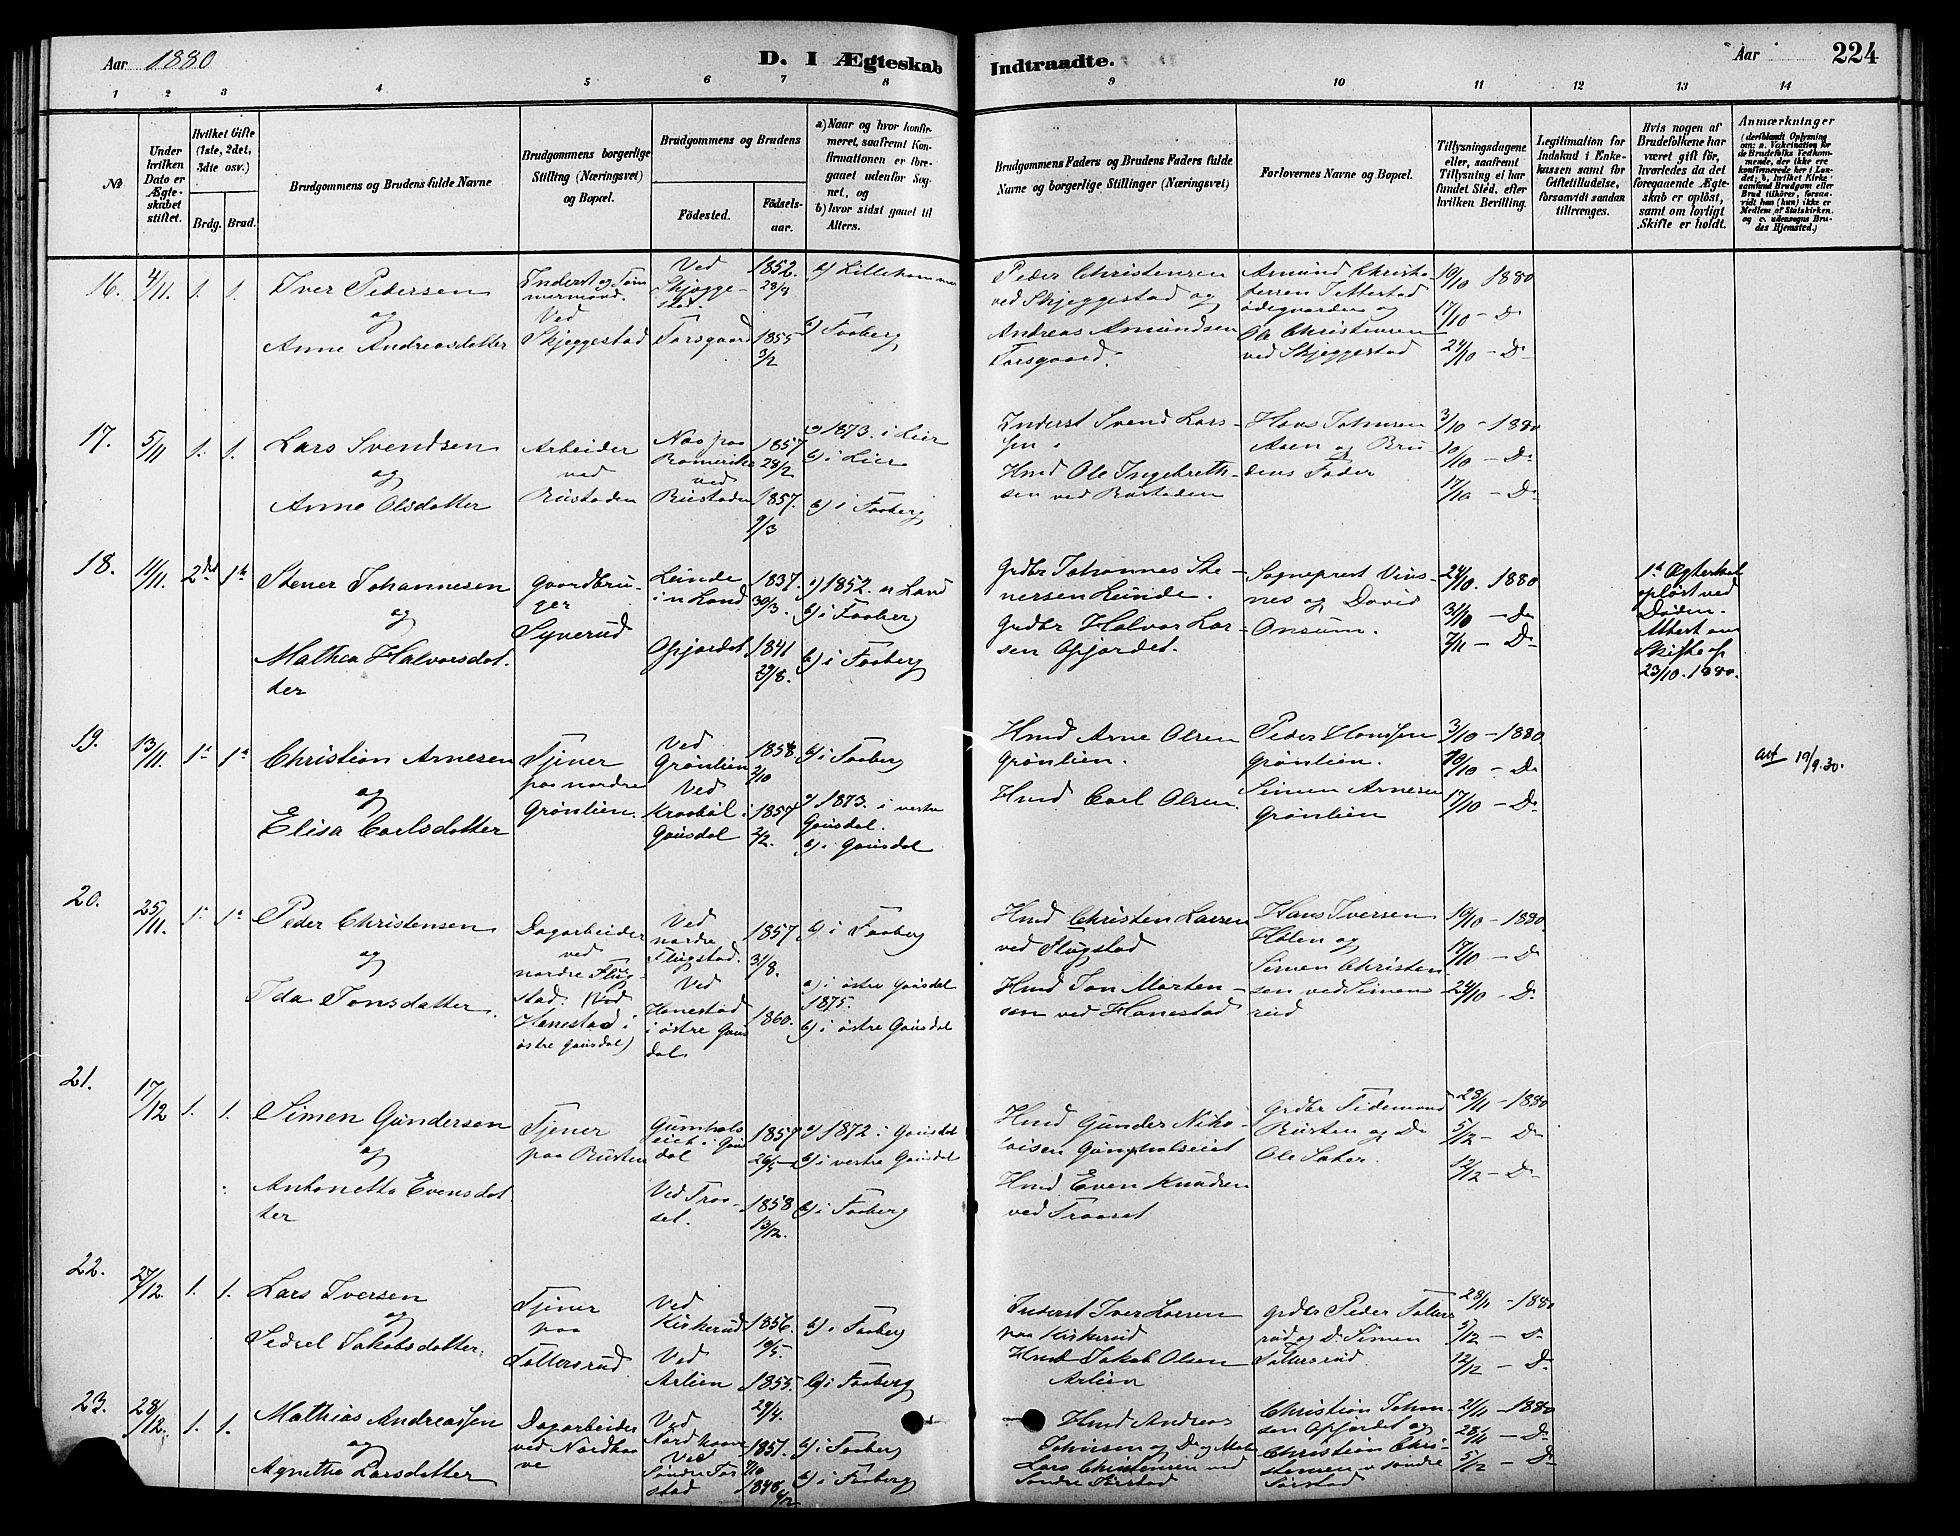 Aar 1880
D. I Ægteskab Indtraadte.
Aar 224
1 2 3 4 5 6 7 8 9 10 11 12 13 14
№
Under hvilken Dato er Ægteskabet stiftet.
Hvilket Gifte (1ste, 2det, 3die osv.)
Brdg. Brud.
Brudgommens og Brudens fulde Navne
Brudgommens borgerlige Stilling (Næringsvei) og Bopæl.
Brudgommens og Brudens
Fødested.
Fødselsaar.
a) Naar og hvor konfirmeret, saafremt Konfirmationen er foregaaet udenfor Sognet, og
b) hvor sidst gaaet til Alters.
Brudgommens Faders og Brudens Faders fulde Navne og borgerlige Stillinger (Næringsvei)
Forlovernes Navne og Bopæl.
Tillysningsdagene eller, saafremt Tillysning ei har fundet Sted, efter hvilken Bevilling.
Legitimation for Indskud i Enkekassen samt for Giftetilladelse, forsaavidt saadan tiltrænges.
Hvis nogen af Brudefolkene har været gift før, hvorledes da det foregaaende Ægteskab er opløst, samt om lovligt Skifte er holdt.
Anmærkninger
16. 4/11. 1. 1.
Iver Pedersen
og
Anne Andreasdatter
Inderst og Tømmermand.
Ved
Skjeggestad
Ved
Skjeggestad
Forsgaard
1852.
1855
3/2
b) Lillehammer
b) Faaberg
Peder Christensen
ved Skjeggestad og
Andreas Amundsen
Forsgaard.
Amund
ødegaarden og
Ole Christensen
ved Skjeggestad
10/10 1880
17/10 – Do
24/10 – Do
17. 5/11 1. 1.
Lars Svendsen
og
Anne Olsdatter
Arbeider
ved
Rustaden
Næs paa
Romerike
ved
Rustaden
1857
28/2
1857.
9/3
a) 1873. i Lier
b) i Lier
b) i Faaberg
Inderst Svend Larsen
Hmd Ole Ingebrethsen
ved Rustaden
Hans Johnsen
Aasen og Brudens Fader
3/10 – 1880
10/10 – Do
17/10 – Do
18. 11/11. 2det 1te
Stener Johannesen
og
Mathea Halvorsdatter
Gaardbruger
Syverud
Lunde
i n Land
Opjordet
1837.
30/3.
1841
29/8.
a) 1852. n Land
b) i Faaberg
b) i Faaberg
Grdbr Johannes Stenersen Lunde.
Grdbr Halvor Larsen Opjordet.
Sogneprest Vinsnes og David
Onsum.
24/10. 1880
31/10 – Do
7/11 – Do
1te Ægteskab
opløst ved
Døden.
Attest om
Skifte af
23/10. 1880.
19. 13/11. 1te 1te
Christian Arnesen
og
Elisa Carlsdatter
Tjener
paa nordre
Grønlien.
Ved
Grønlien
Ved
Kraabøl i
Gausdal
1858
2/10
1857
2/2.
b) i Faaberg
a) 1873. i vestre
Gausdal.
b) i Gausdal
Hmd Arne Olsen
Grønlien.
Hmd Carl Olsen.
Peder Hansen
Grønlien.
Simen Arnesen
Grønlien
3/10 – 1880
10/10 – Do
17/10 – Do
att 19/9.30.
20. 25/11. 1te 1te
Peder Christensen
og
Ida Jonsdatter.
Dagarbeider
ved
nordre Flugstad. (Brud
Hanestad i
østre Gausdal)
Ved
nordre
Flugstad.
Ved
Hanestad
i østre Gausdal
1857
31/8.
1860.
b) i Faaberg
a) i østre Gausdal
1875.
b) i østre Gausdal
Hmd Christen Larsen
ved Flugstad
Hmd Jon Mortensen ved Hanestad
Hans Iversen
Holen og
Simen Christensen ved Simenrud
10/10 – 1880.
17/10 – Do
24/10 – Do
21. 17/12 1. 1.
Simen Gundersen
og
Antonette Evensdatter
Tjener
paa Rusten
Gausdal
Ved Traaset.
1857
26/5
1858
13/12.
a) 1872 i Gausdal
b) i vestre Gausdal
b) i Faaberg
Hmd Gunder Nikolaisen
Hmd Even Knudsen
ved Traaset
Grdbr Tidemand
Rusten og Do
Ole Sæter.
28/11 – 1880
5/12 – Do
12/12 – Do
22. 27/12. 1. 1.
Lars Iversen
og
Sidsel Jakobsdatter.
Tjener
paa
Tollersrud
Ved
Kirkerud
Ved
Arlien
1856.
19/5.
1855.
29/4.
b) i Faaberg
b) i Faaberg
Inderst Iver Larsen
paa Kirkerud
Hmd Jakob Olsen
Arlien
Grdbr Peder Tollersrud og Do Simen
Tollersrud.
28/11 – 1880
5/12 – Do
12/12 – Do
23. 28/12. 1. 1.
Mathias Andreassen
og
Agnethe Larsdatter
Dagarbeider
ved Nordhove
Ved
Nordhove
Ved
Søndre Forstad
1857.
7/10
1848
b) i Faaberg
b) i Faaberg
Hmd Andreas
Johnsen og
Lars Christensen ved
Søndre
Christian Johansen Opjordet og
Christian Christensen v søndre
21/11 – 1880
28/11 – Do
5/12 – Do